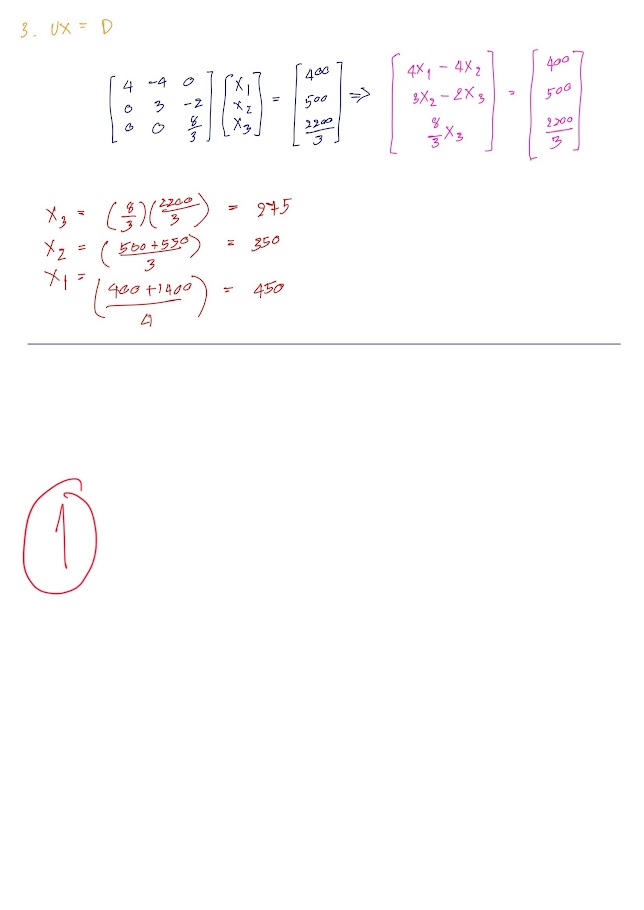 3. UX = D
[4 -4 0; 0 3 -2; 0 0 8/3] [X1; X2; X3] = [400; 500; 2200/3] => [4X1 - 4X2; 3X2 - 2X3; 8/3 X3] = [400; 500; 2200/3]
X3 = (8/3)(2200/3) = 275
X2 = (500+550/3) = 350
X1 = (400+1400/4) = 450
1